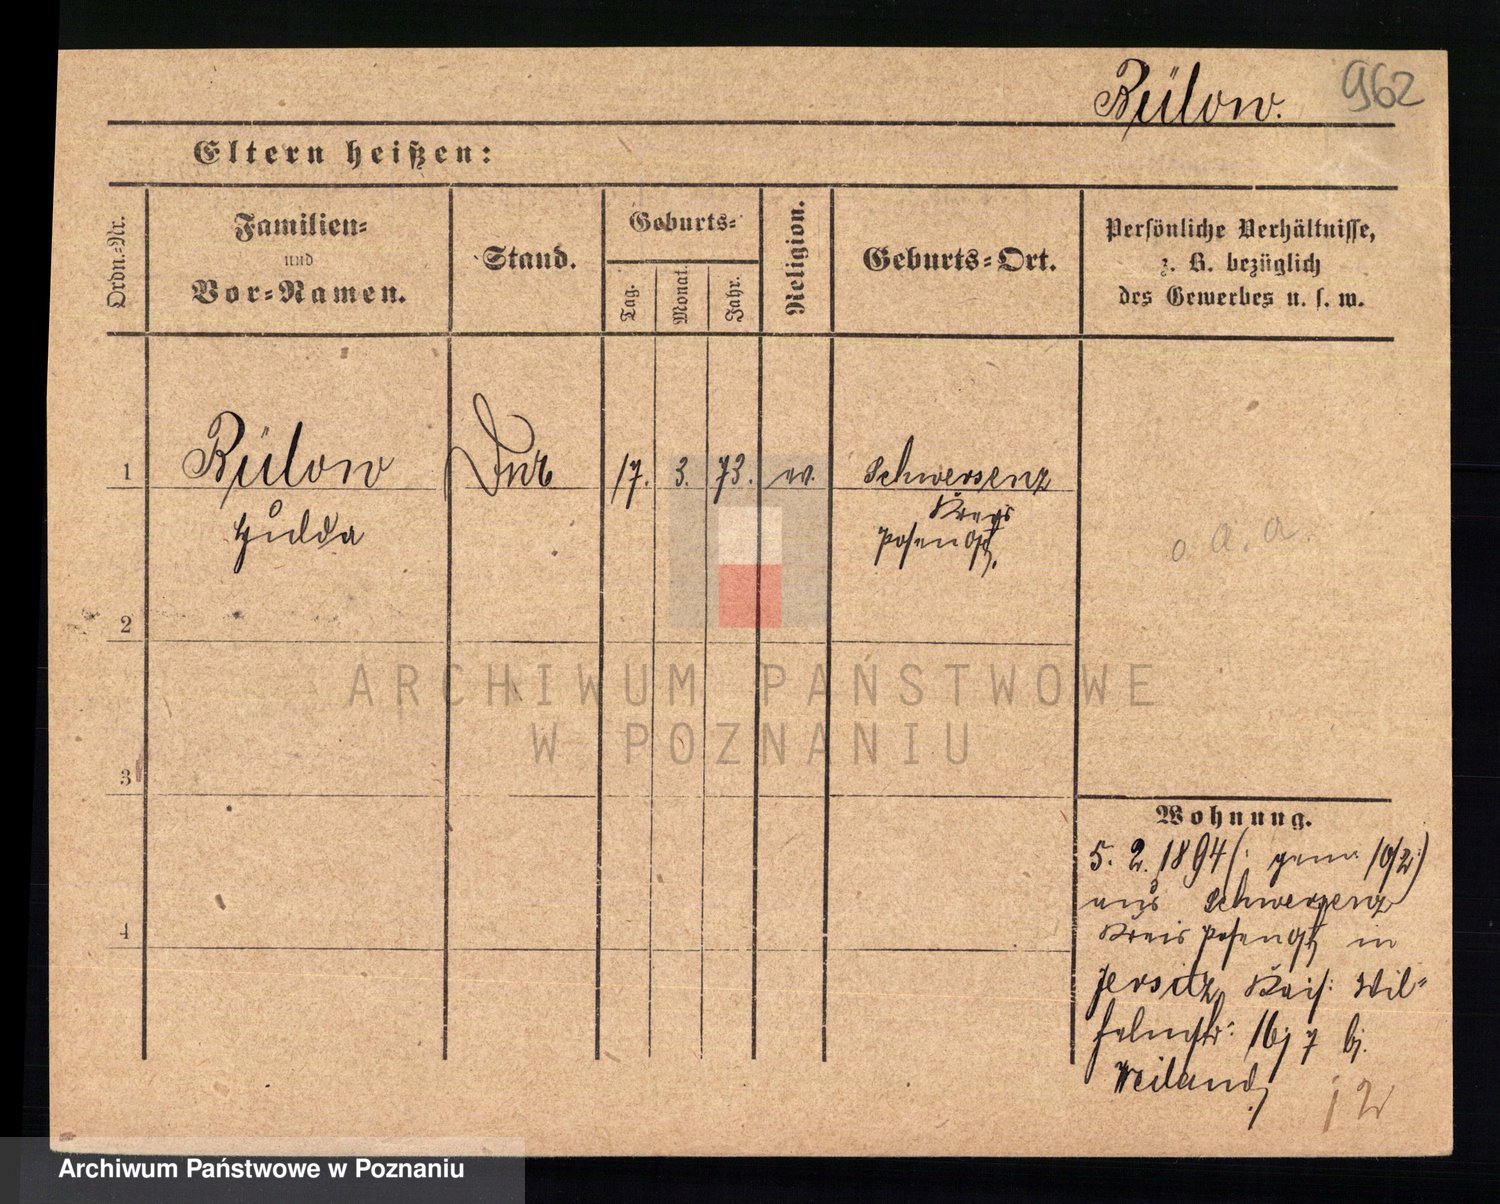 Bülow.
962
Eltern heißen:
Ordn.-Nr.
Familien-
und
Vor-Namen.
Stand.
Geburts-
Tag.
Monat.
Jahr.
Religion.
Geburts-Ort.
Persönliche Verhältnisse,
z. B. bezüglich
des Gewerbes u. s. w.
1 Bülow 17. 3. 73. ev. Schwersenz
Hulda
Kreis
Posen Ost.
o. a. a.
2
3
4
ARCHIWUM PAŃSTWOWE
W POZNANIU
Wohnung.
5. 2. 1894 (: gem. 10/2:)
aus Schwersenz
Kreis Posen Ost in
Jersitz, Kais: Wil-
helmstr: 16/17 bj.
Weiland
12
Archiwum Państwowe w Poznaniu